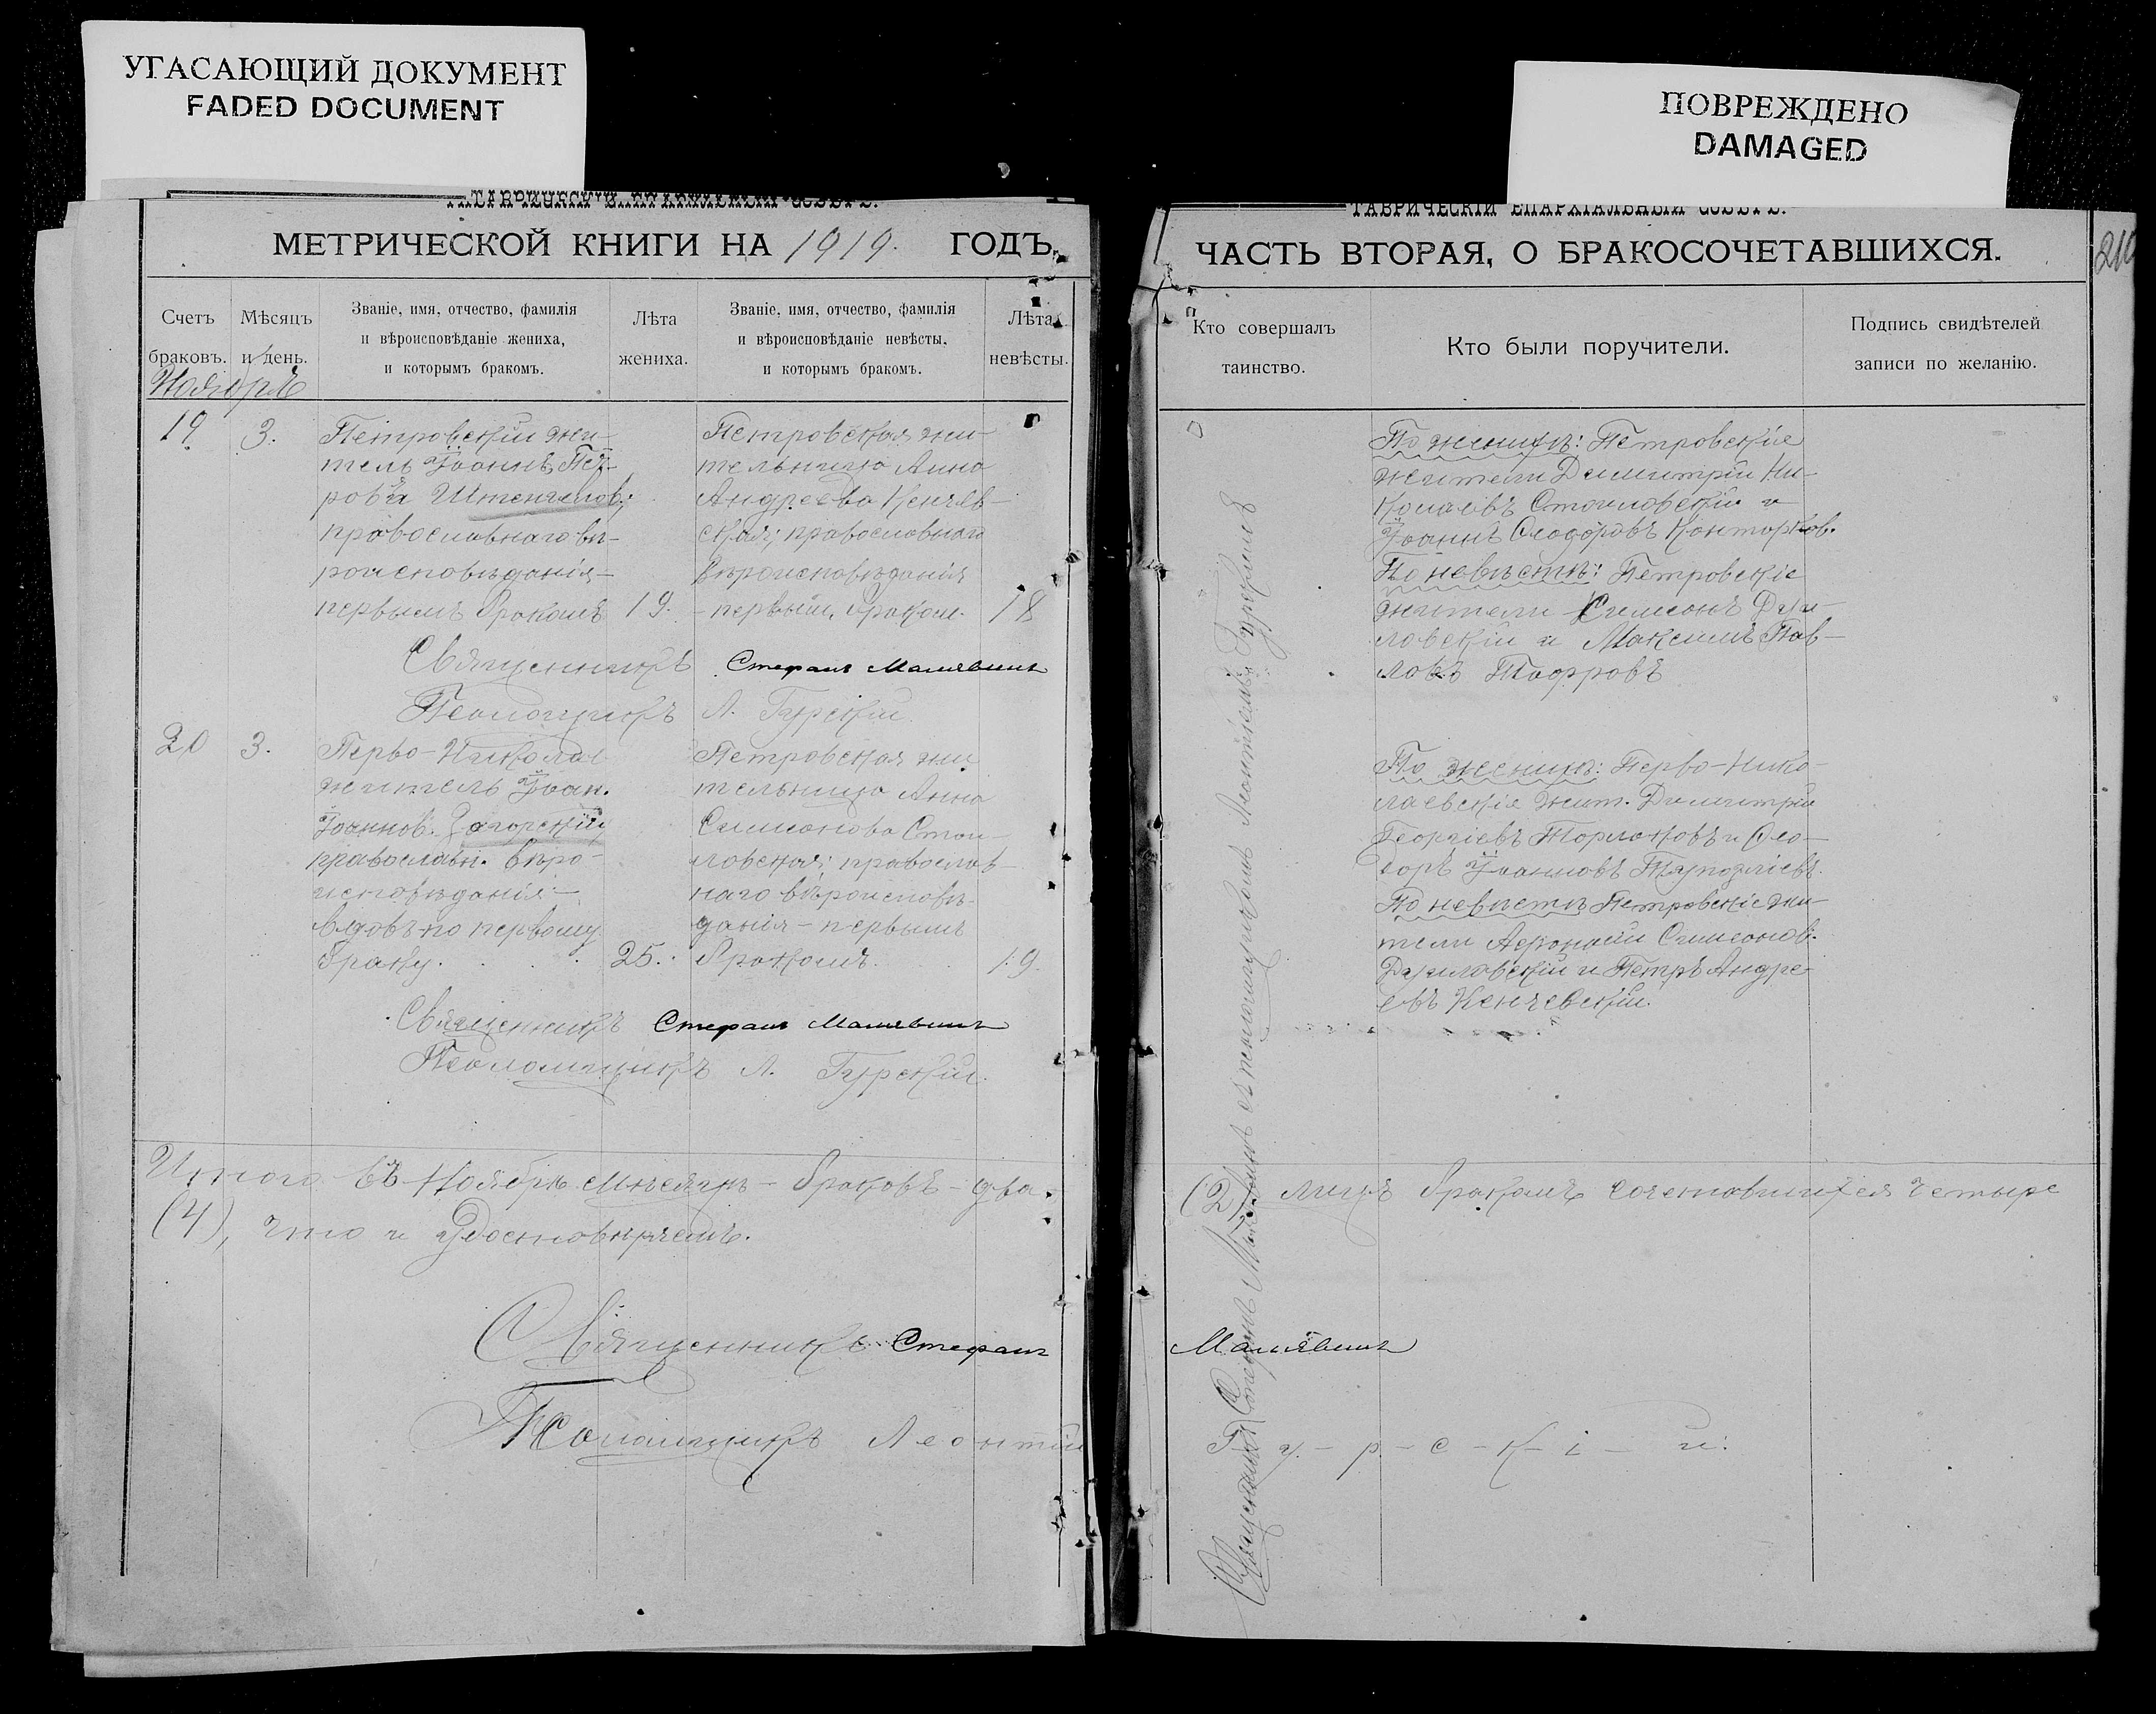 УГАСАЮЩИЙ ДОКУМЕНТ
FADED DOCUMENT
ПОВРЕЖДЕНО
DAMAGED
ТАВРИЧЕСКІЙ ЕПАРХІАЛЬНЫЙ СОВѢТЪ.
МЕТРИЧЕСКОЙ КНИГИ НА 1919. ГОДЪ,
Счетъ браковъ.
Мѣсяцъ и день.
Званіе, имя, отчество, фамилія
и вѣроисповѣданіе жениха,
и которымъ бракомъ.
Лѣта жениха.
Званіе, имя, отчество, фамилія
и вѣроисповѣданіе невѣсты,
и которымъ бракомъ.
Лѣта невѣсты.
Ноябрь
19
3.
Петровскій жи-
тель Іоаннъ Пет-
православнаго вѣ-
роисповѣданія-
первымъ бракомъ
19.
Петровская жи-
тельница Анна
Андреева Кенчев-
ская; православнаго
вѣроисповѣданія
- первым. браком.
18
Священникъ Стефанъ Малявинъ
Псаломщикъ Л. Гурскій.
20
3.
Перво-Николае
житель Іоан.
Іоаннов. Загорскій
православн. вѣро-
исповѣданія-
вдовъ по первому
браку.
25.
Петровская жи
тельница Анна
Симеонова Стои-
ловская; православ
наго вѣроисповѣ-
данія - первымъ
бракомъ.
19.
Священникъ Стефанъ Малявинъ
Псаломщикъ Л. Гурскій.
Итого въ Ноябрѣ мѣсяцѣ - браковъ - два.
(4), что и удостовѣряемъ.
Священникъ Стефанъ
Псаломщикъ Леонтій
ТАВРИЧЕСКІЙ ЕПАРХІАЛЬНЫЙ СОВѢТЪ.
ЧАСТЬ ВТОРАЯ, О БРАКОСОЧЕТАВШИХСЯ.
210
Кто совершалъ
таинство.
Кто были поручители.
Подпись свидѣтелей
записи по желанію.
Священникъ Стефанъ Малявинъ съ псаломщикомъ Леонтіемъ Гурскимъ
По женихѣ: Петровскіе
жители Димитрій Ни-
колаевъ Стоиловскій и
Іоаннъ Ѳеодоровъ
По невѣстѣ: Петровскіе
жители Симеонъ
ловскій и Максимъ Пав-
ловъ
По женихѣ: Перво-Нико-
лаевскіе жит. Димитрій
Георгіевъ и Ѳео-
доръ Іоанновъ
По невѣстѣ Петровскіе жи-
тели Аѳонасій Симеонов.
и Петръ Андре-
евъ Кенчевскій.
(2) лицъ бракомъ сочетавшихся четыре
Малявинъ
Г - у - р - с - к - і - й.